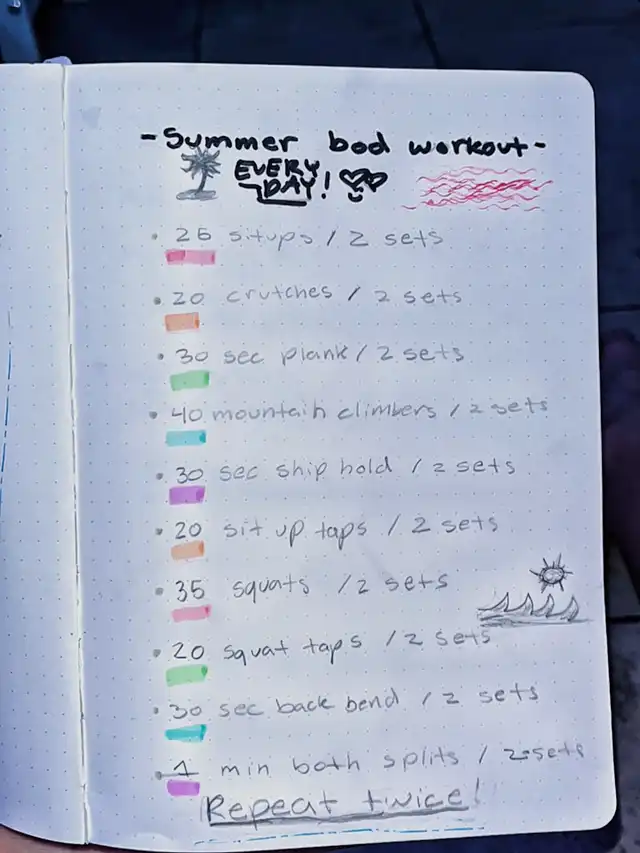 - Summer bod workout -
EVERY
DAY!
• 25 situps / 2 sets
• 20 crutches / 2 sets
• 30 sec plank / 2 sets
• 40 mountain climbers / 2 sets
• 30 sec ship hold / 2 sets
• 20 sit up taps / 2 sets
• 35 squats / 2 sets
• 20 squat taps / 2 sets
• 30 sec back bend / 2 sets
• 1 min both splits / 2 sets
Repeat twice!